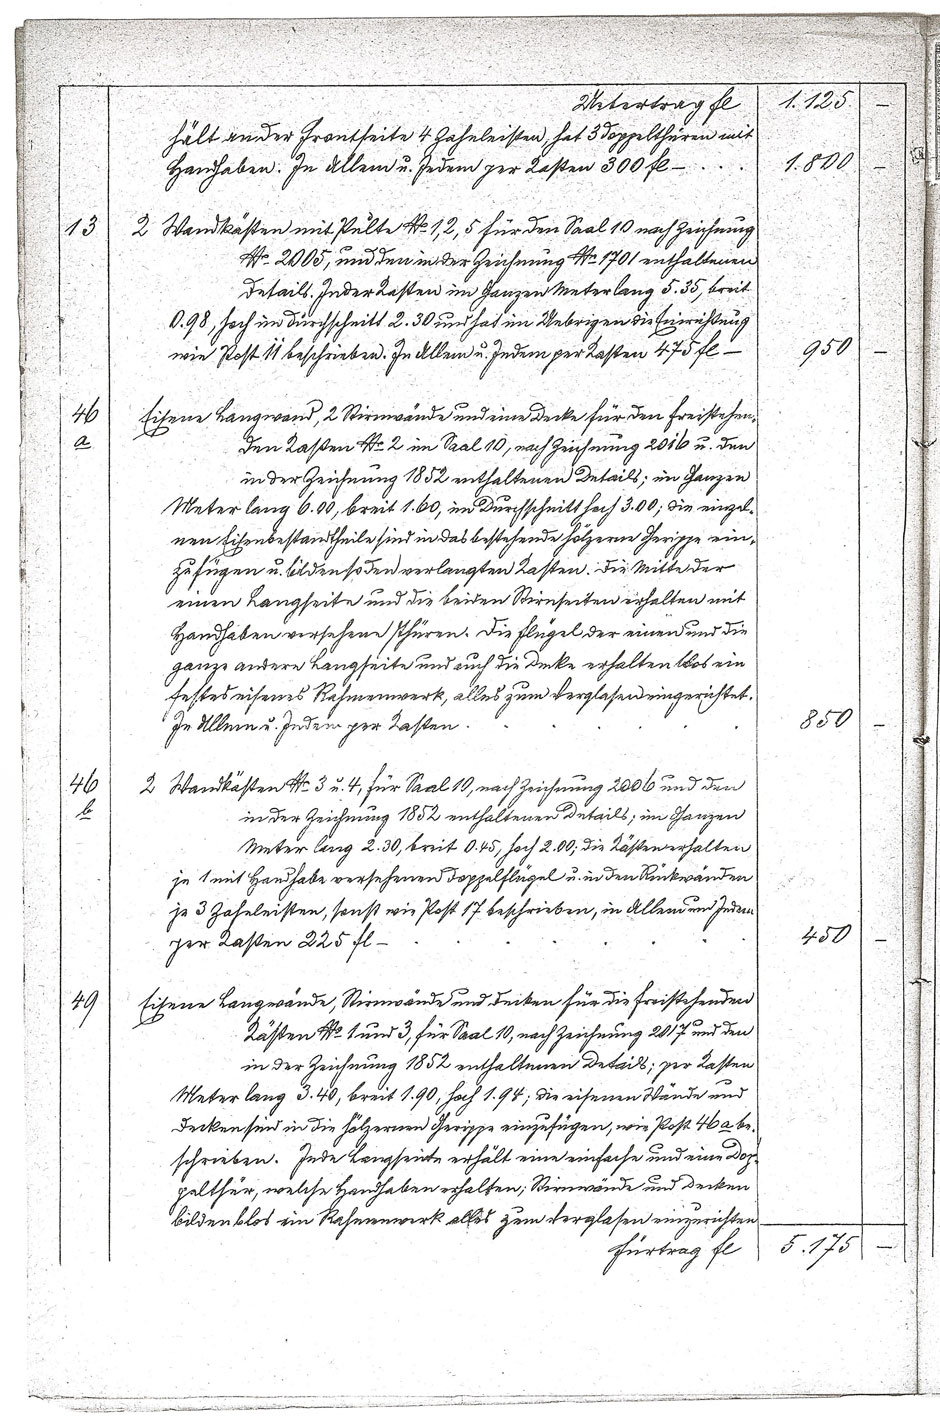 Uebertrag fl 1.125. –
hält an der Frontseite 4 Zahnleisten, hat 3 Doppelthüren mit
Handhaben. In Allem u. Jedem per Kasten 300 fl – . . . 1.800 –
13 2 Wandkästen mit Pulte No 1, 2, 5 für den Saal 10 nach Zeichnung
No 2005, und den in der Zeichnung No 1701 enthaltenen
Details. Jeder Kasten im Ganzen Meter lang 5.35, breit
0.98, hoch im Durchschnitt 2.30 und hat im Uebrigen die Einrichtung
wie Post 11 beschrieben. In Allem u. Jedem per Kasten 475 fl – 950 –
46 Eiserne Langwand, 2 Stirnwände und eine Decke für den freistehen-
a den Kasten No 2 im Saal 10, nach Zeichnung 2016 u. den
in der Zeichnung 1852 enthaltenen Details; im Ganzen
Meter lang 6.00, breit 1.60, im Durchschnitt hoch 3.00; die einzel-
nen Eisenbestandtheile sind in das bestehende hölzerne Gerippe ein-
zufügen u. bilden so den verlangten Kasten. Die Mitte der
einen Langseite und die beiden Stirnseiten erhalten mit
Handhaben versehene Thüren. Die Flügel der einen und die
ganze andere Langseite und auch die Decke erhalten blos ein
festes eisernes Rahmenwerk, alles zum Verglasen eingerichtet.
In Allem u. Jedem per Kasten . . . . . 850 –
46 2 Wandkästen No 3 u. 4, für Saal 10, nach Zeichnung 2006 und den
b in der Zeichnung 1852 enthaltenen Details; im Ganzen
Meter lang 2.30, breit 0.45, hoch 2.00; die Kästen erhalten
je 1 mit Handhabe versehenen Doppelflügel u. in den Rückwänden
je 3 Zahnleisten, sonst wie Post 17 beschrieben, in Allem und Jedem
per Kasten 225 fl – . . . . . . 450 –
49 Eiserne Langwände, Stirnwände und Decken für die freistehenden
Kästen No 1 und 3, für Saal 10, nach Zeichnung 2017 und den
in der Zeichnung 1852 enthaltenen Details; per Kasten
Meter lang 3.40, breit 1.90, hoch 1.94; die eisernen Wände und
Decken sind in die hölzernen Gerippe einzufügen, wie Post 46 a be-
schrieben. Jede Langseite erhält eine einfache und eine Dop-
pelthür, welche Handhaben erhalten; Stirnwände und Decken
bilden blos ein Rahmenwerk alles zum Verglasen einzurichten
Fürtrag fl 5.175 –